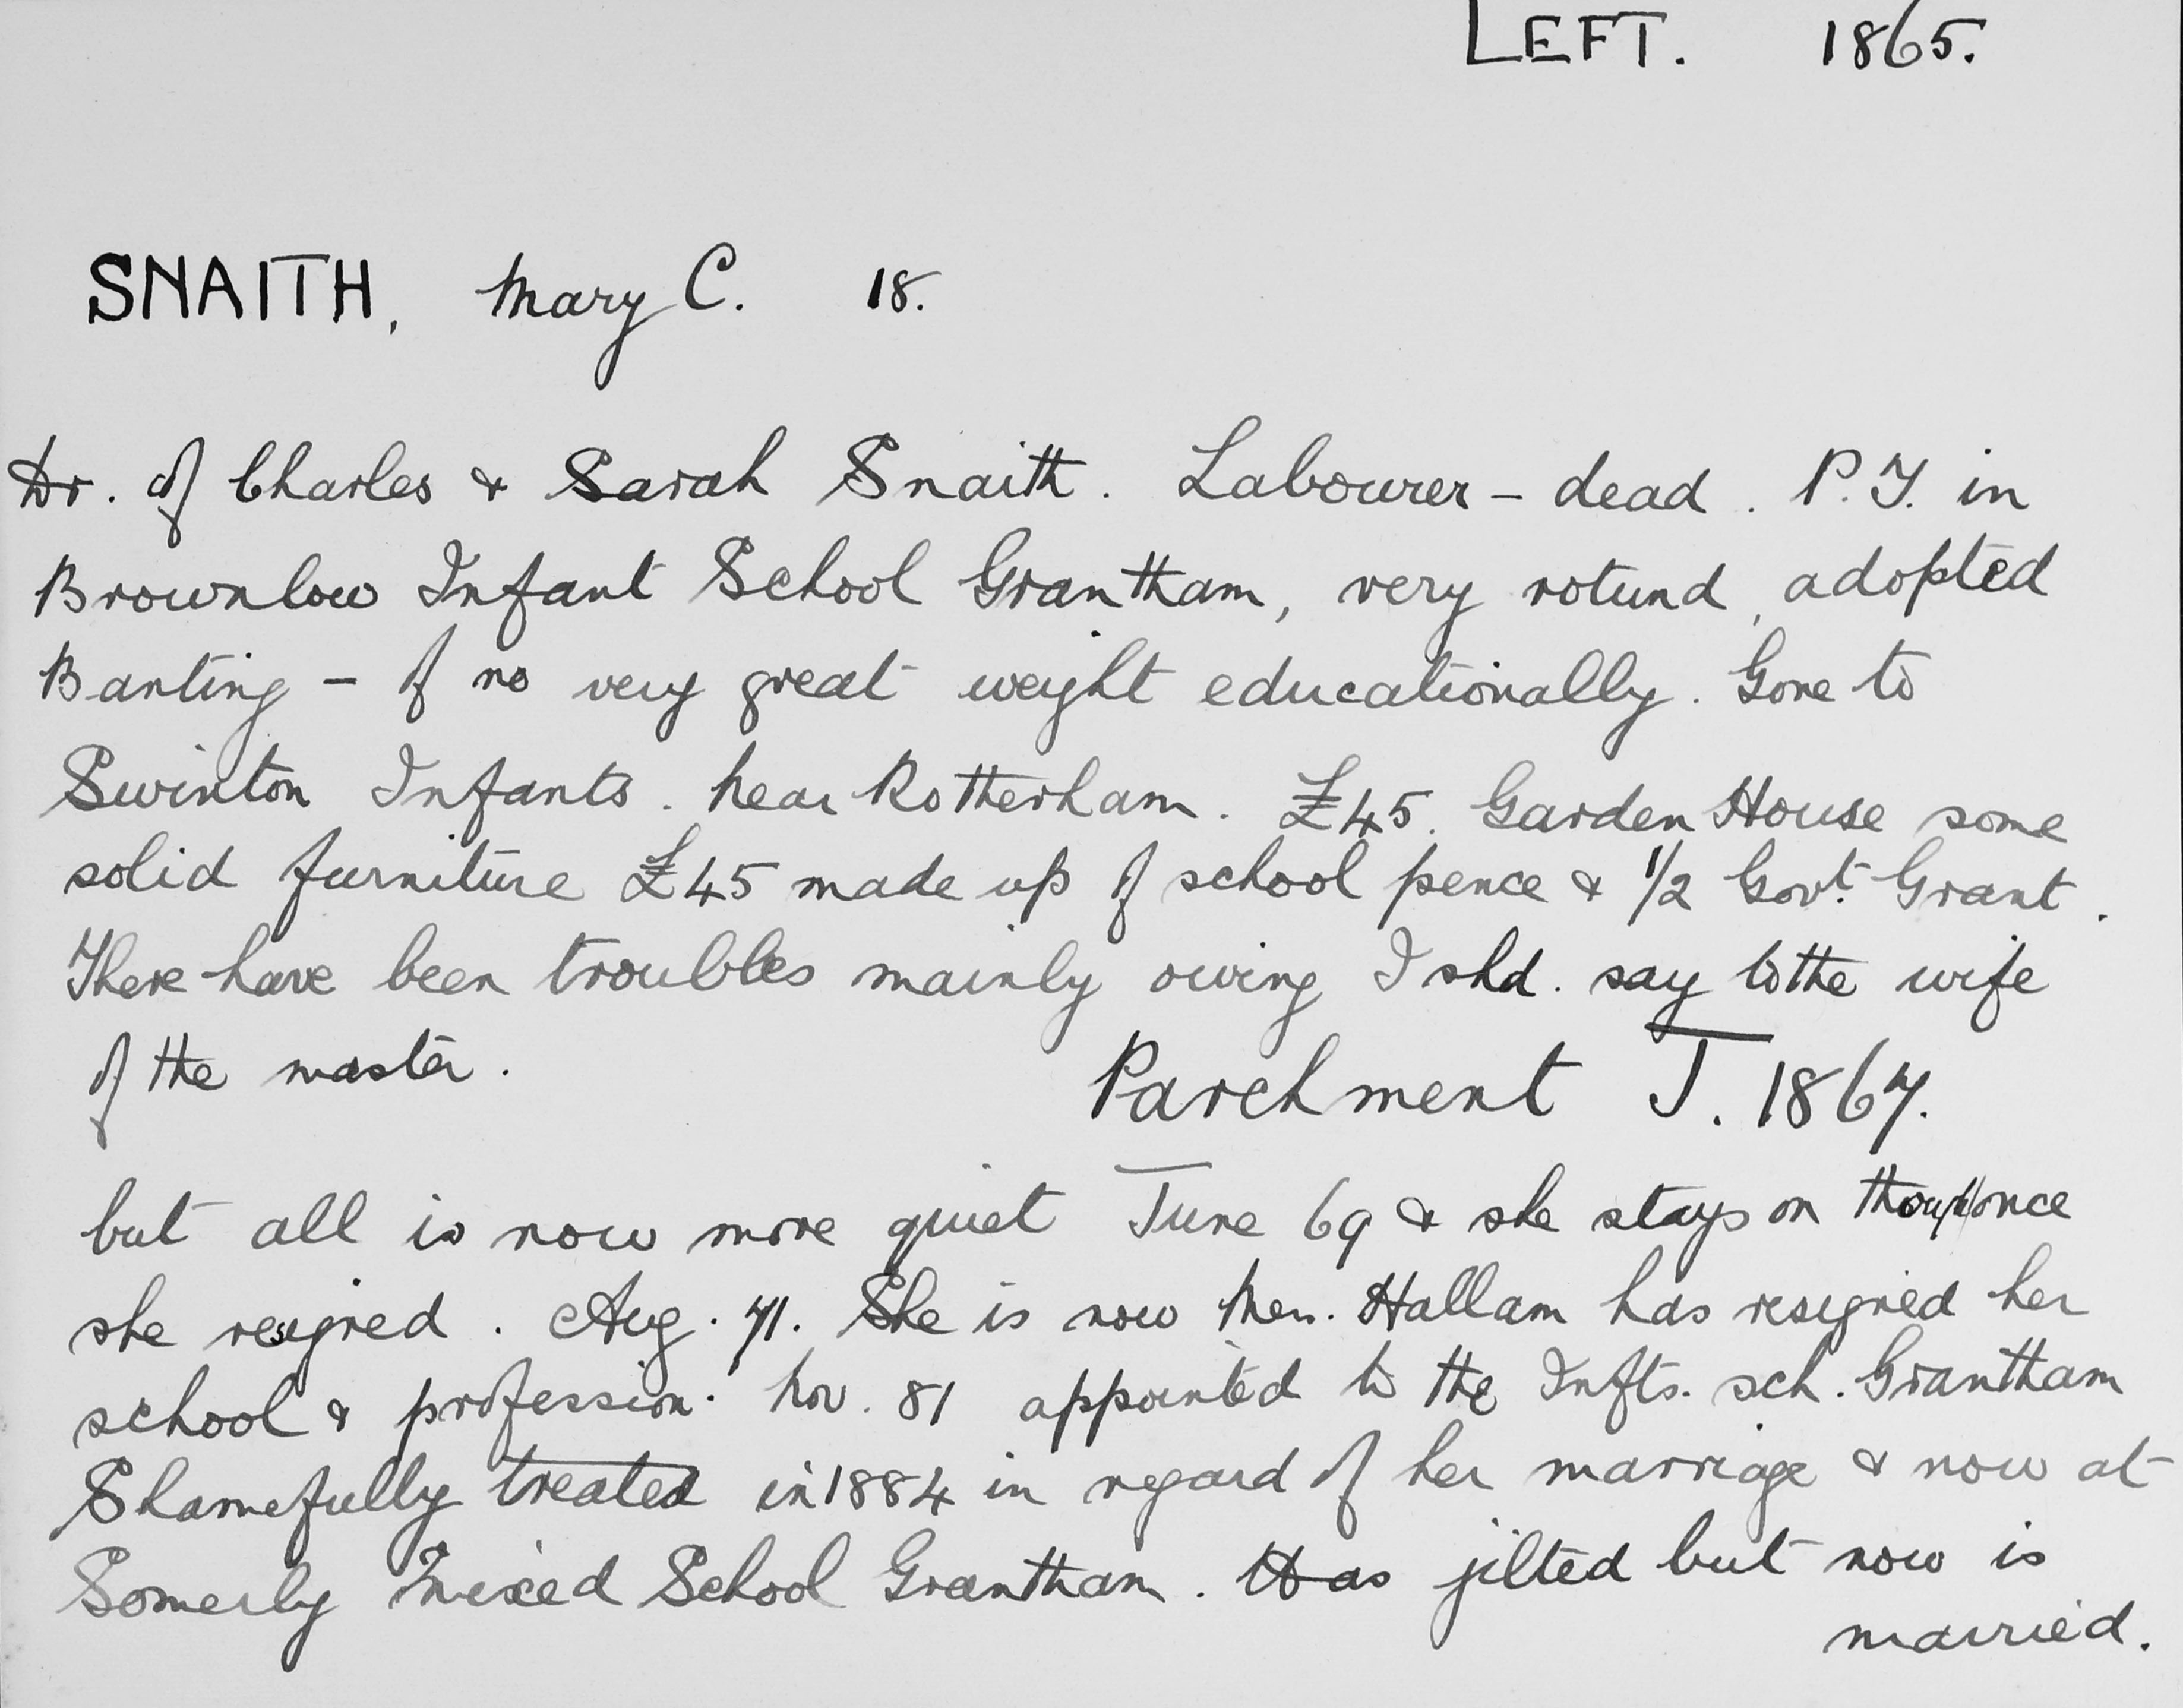 LEFT. 1865.
SNAITH, Mary C. 18.
Dr. of Charles & Sarah Snaith. Labourer - dead. P.T. in
Brownlow Infant School Grantham, very rotund, adopted
Banting - of no very great weight educationally. Gone to
Swinton Infants. near Rotherham. £45. Garden House some
solid furniture £45 made up of school pence & 1/2 Govt. Grant.
There have been troubles mainly owing I shd. say to the wife
of the master.
Parchment J. 1867.
but all is now more quiet June 69 & she stays on though once
she resigned. Aug. 71. She is now Mrs. Hallam has resigned her
school & profession. Nov. 81 appointed to the Infts. sch. Grantham
Shamefully treated in 1884 in regard of her marriage & now at
Somerby Mixed School Grantham. Has jilted but now is
married.